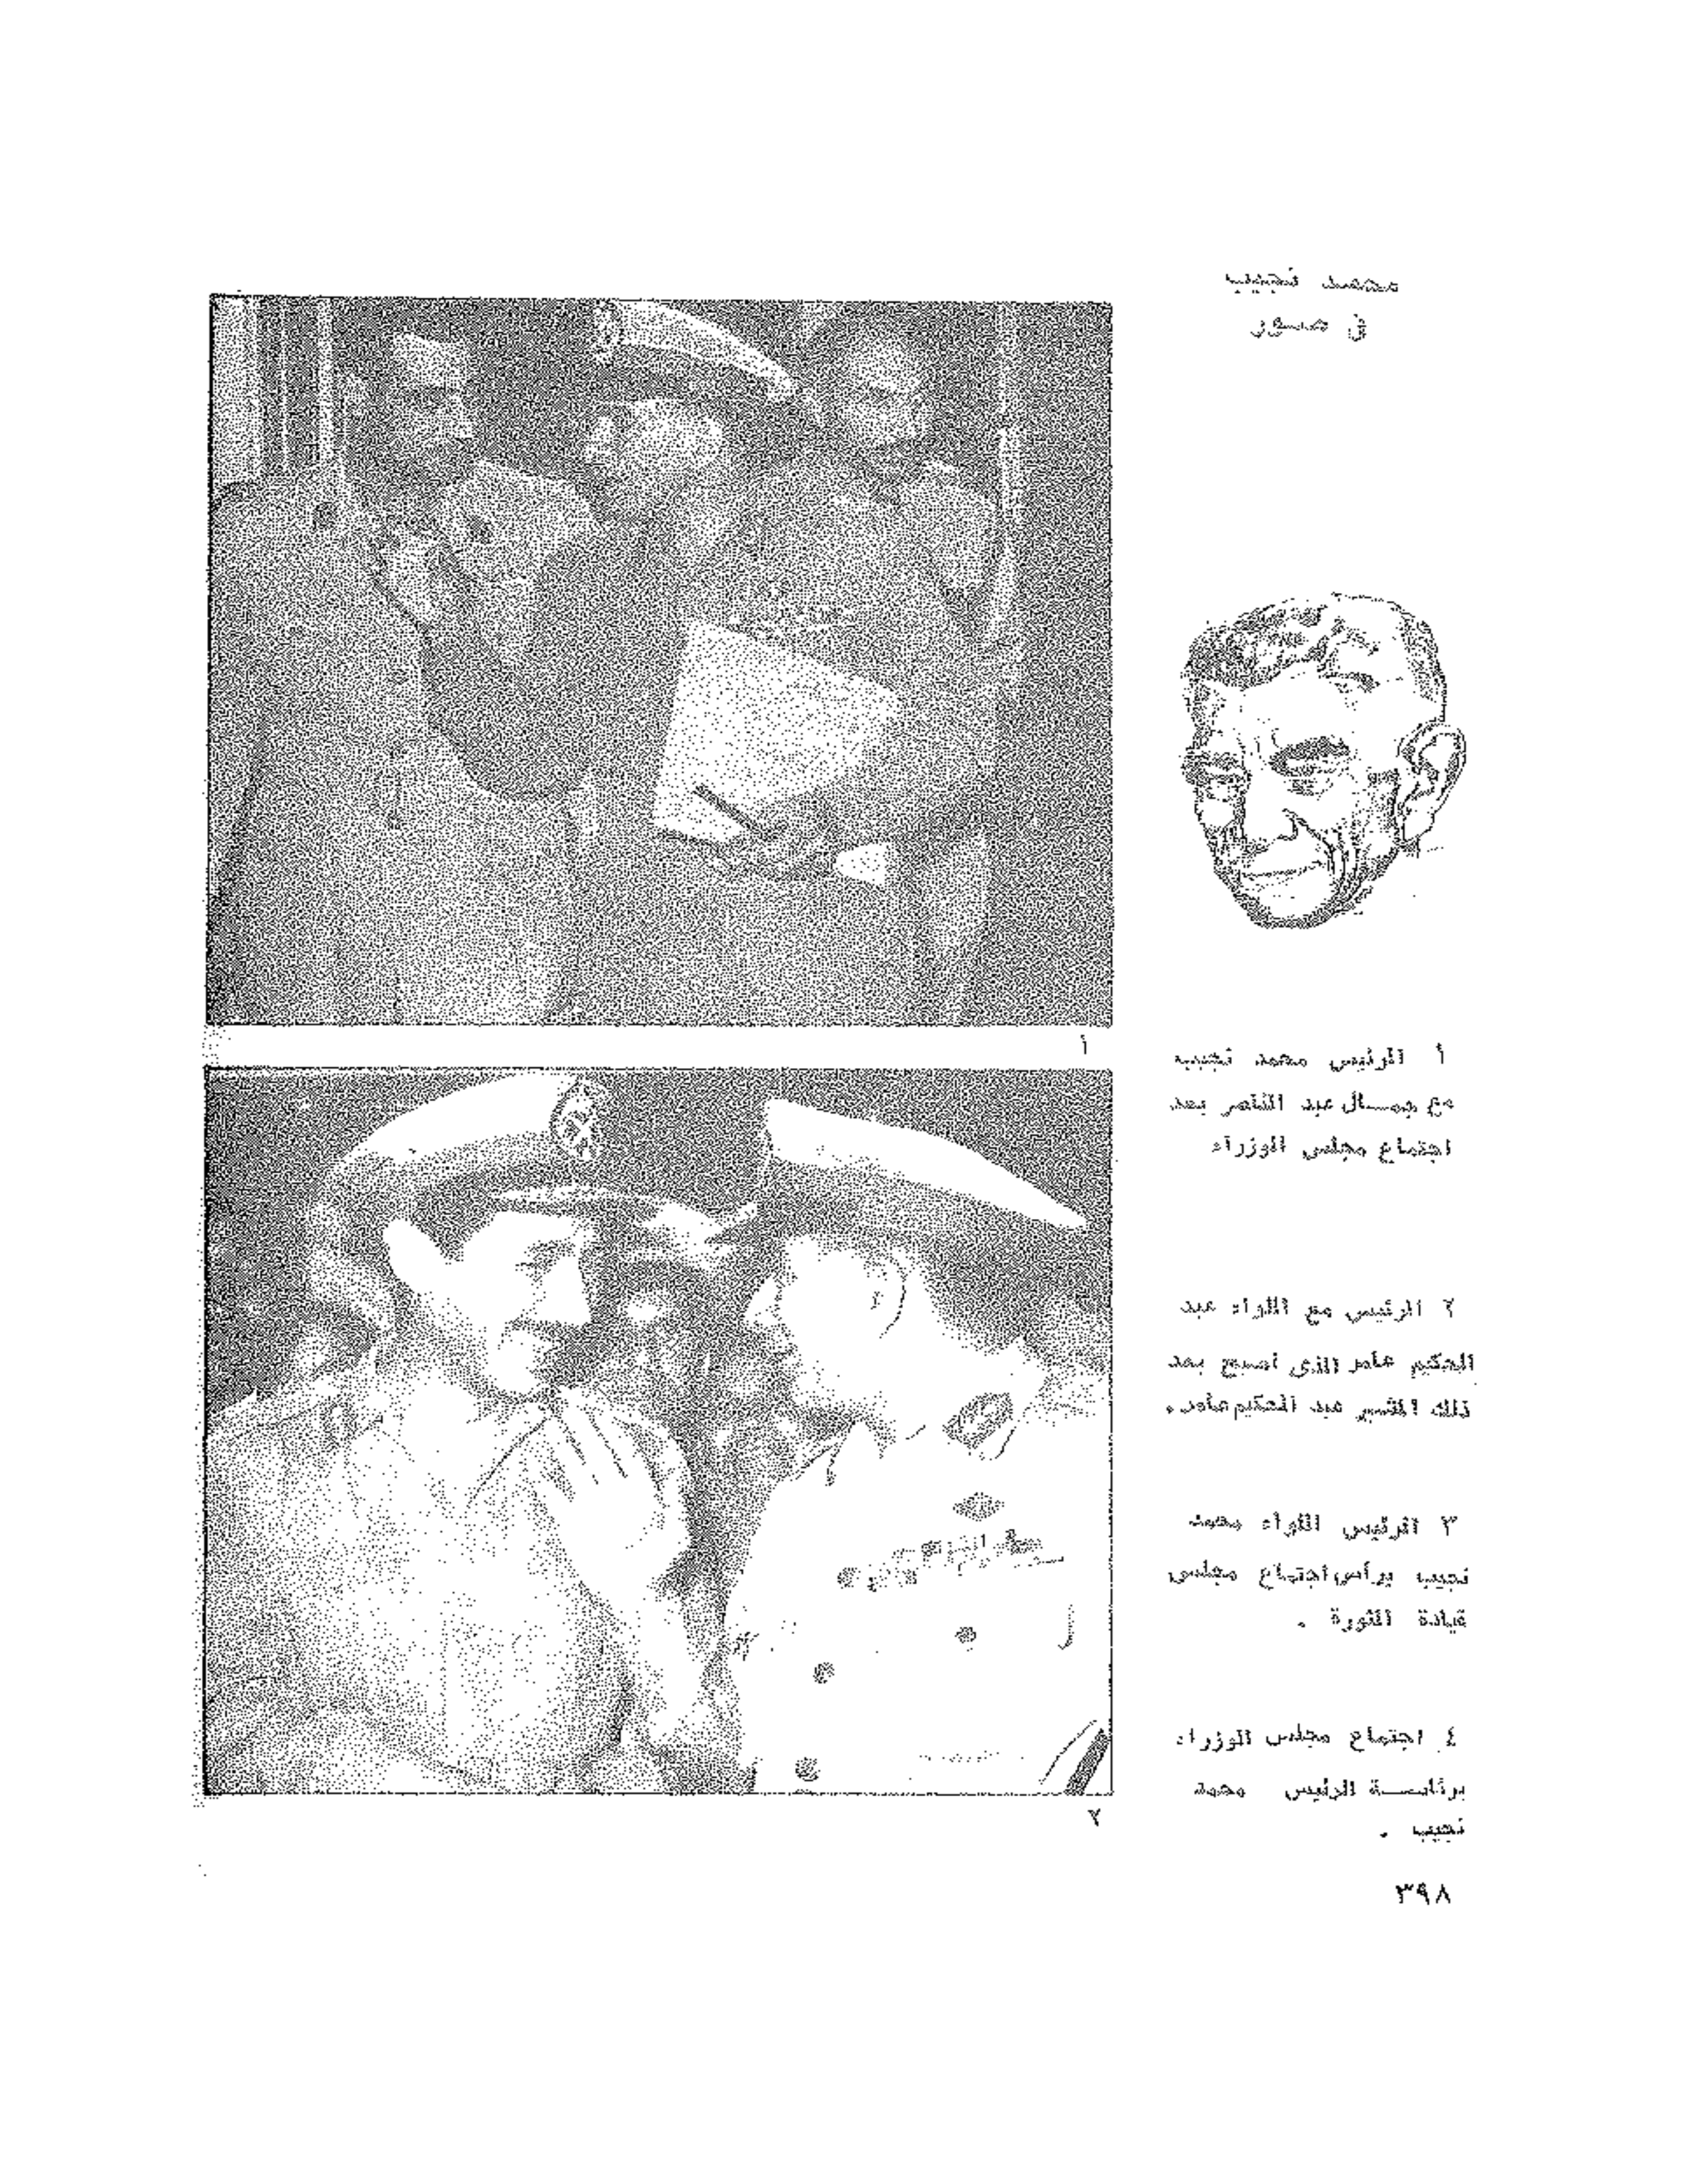 محمد نجيب
في صور
أ الرئيس محمد نجيب
مع جمـــال عبد الناصر بعد
اجتماع مجلس الوزراء
٢ الرئيس مع اللواء عبد
الحكيم عامر الذى اصبح بعد
ذلك المشير عبد الحكيم عامر .
٣ الرئيس اللواء محمد
نجيب يرأس اجتماع مجلس
قيادة الثورة .
٤ اجتماع مجلس الوزراء
برئاســـة الرئيس محمد
نجيب .
أ
٢
٣٩٨